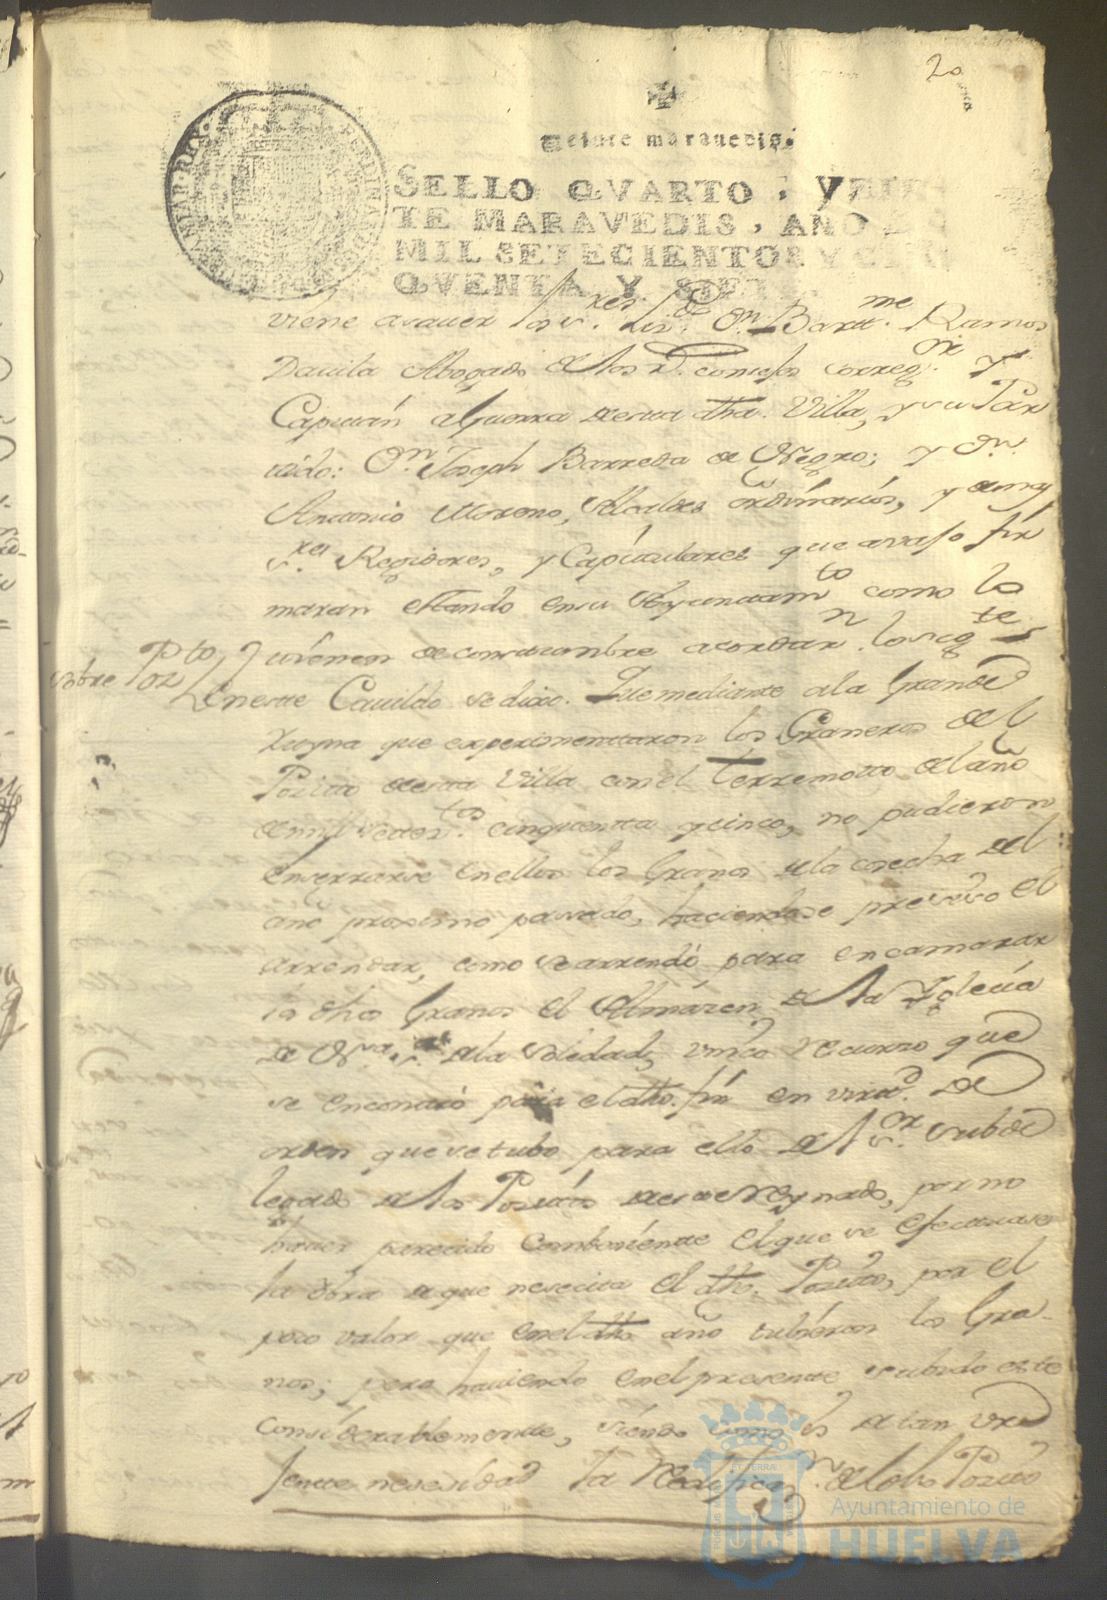 20
Veinte maravedis.
SELLO QVARTO, VEIN
TE MARAVEDIS, AÑO DE
MIL SETECIENTOS Y CIN
QVENTA Y SIETE
viene a saver los s.res Liz.do Dn. Bartt.me Ramos
Davila Abogado de los R.s consejos correg.or y
Capitan a Guerra de esta dha. Villa, y su Par
tido: Dn. Joseph Barreda de Negro; y Dn.
Antonio Moreno, Alcaldes ordinarios, y demas
s.res Regidores, y Capitulares que avajo fir
maran estando en su Ayuntam.to como lo
tienen de constumbre acordar.n lo sig.te
sobre Pto Poz
En este Cavildo se dixo. Que mediante a la Grande
Ruyna que experimenttaron los Graneros del
Posito de esta Villa con el terremotto del año
de mil settez.tos cinquentta y cinco, no pudieron
enserrarse en ellos los Granos de la cosecha del
año proximo pasado, haciendose presiso el
arrendar, como se arrendó para encamarar
los dhos Granos el Almazen de la Iglecia
de N.ra S.ra de la Soledad, unico recurso que
se encontró para el dho. fin en virtd. de
orden que se tubo para ello del S.or Subde
legado de los Positos de este Reynado, por no
haver parecido combeniente el que se efectuase
la obra de que nesecita el dho. Posito, por el
poco valor que en el dho año tubieron los Gra-
nos; pero haviendo en el presente subido este
considerablemente, siendo como es de tan ur
jente nesesidad la Redificaz.n de dho Posito
Ayuntamiento de
HUELVA